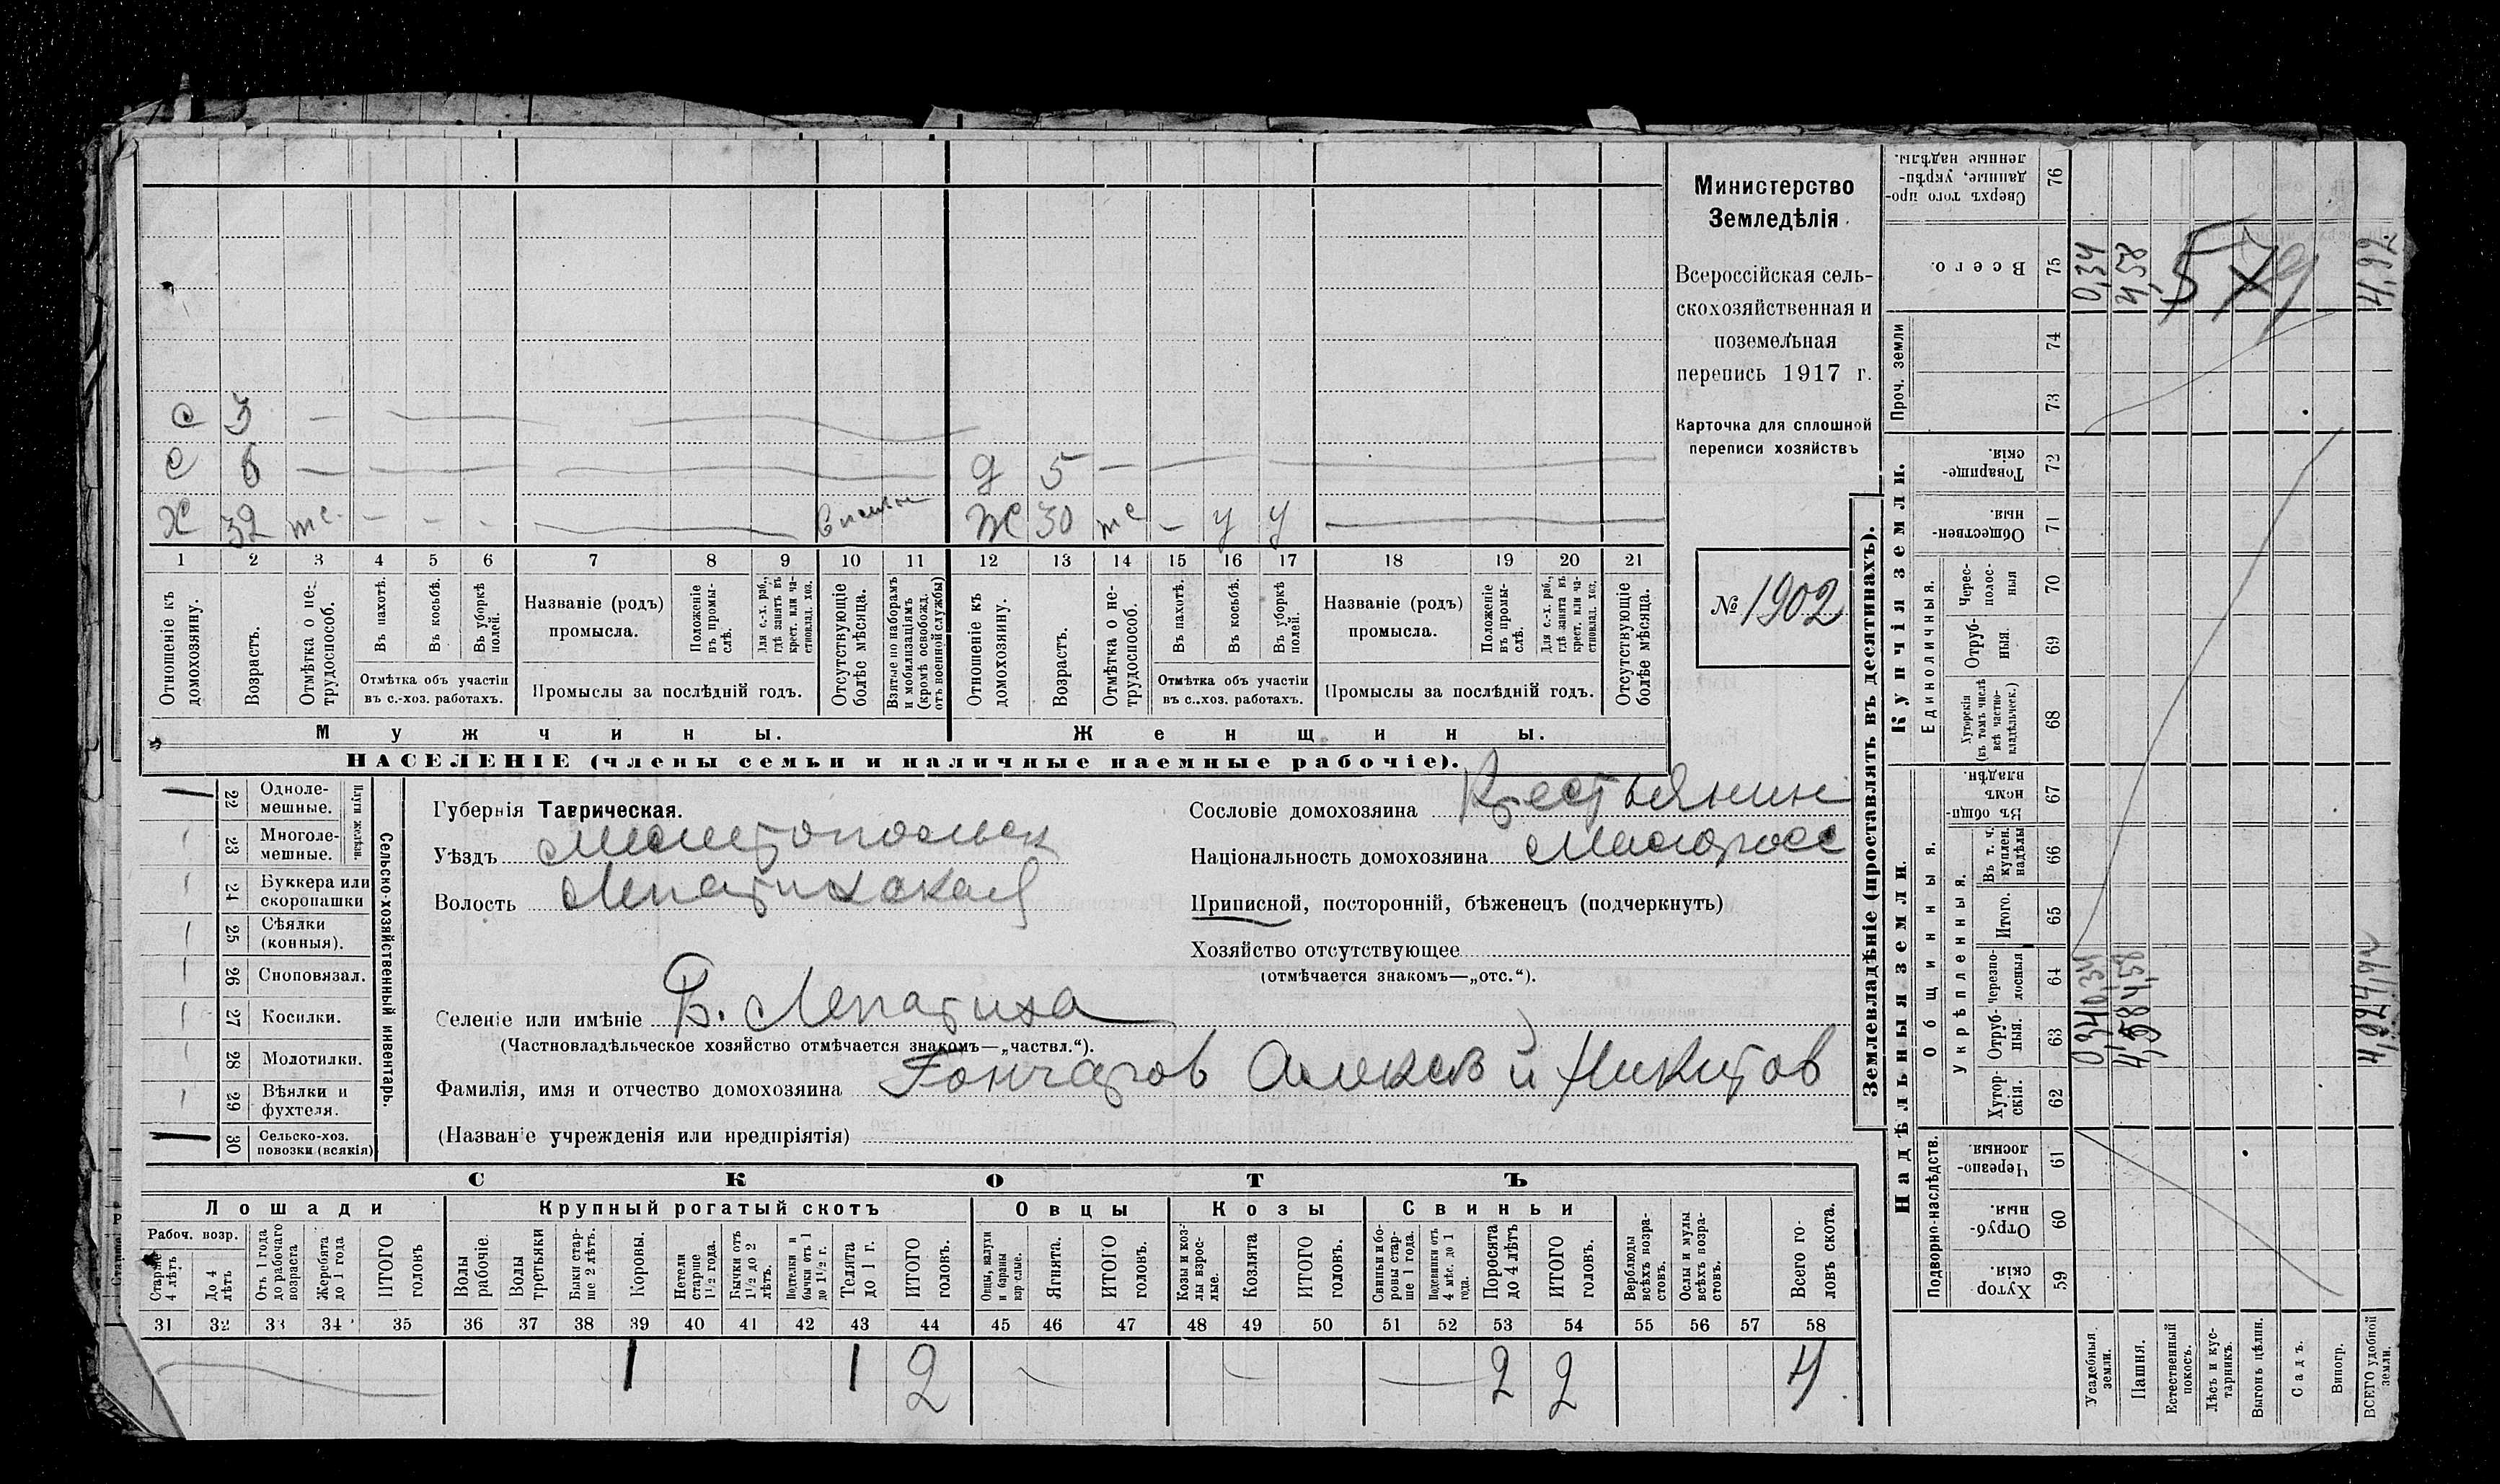 С 3 —
С 6 — Д 5 —
Х 32 — — — Ж 30 — У У
1 2 3 4 5 6 7 8 9 10 11 12 13 14 15 16 17 18 19 20 21
Отношеніе къ домохозяину.
Возрастъ.
Отмѣтка о не-трудоспособ.
Въ пахотѣ.
Въ косьбѣ.
Въ уборкѣ полей.
Отмѣтка объ участіи
въ с.-хоз. работахъ.
Названіе (родъ)
промысла.
Положеніе въ промы-слѣ.
Для с.-х. раб., гдѣ занятъ въ крест. или ча-стновлад. хоз.
Промыслы за послѣдній годъ.
Отсутствующіе болѣе мѣсяца.
Взятые по наборамъ и мобилизаціямъ (кромѣ освобожд. отъ военной службы)
Отношеніе къ домохозяину.
Возрастъ.
Отмѣтка о не-трудоспособ.
Въ пахотѣ.
Въ косьбѣ.
Въ уборкѣ полей.
Отмѣтка объ участіи
въ с..хоз. работахъ.
Названіе (родъ)
промысла.
Положеніе въ промы-слѣ.
Для с.-х. раб., гдѣ занята въ крест. или ча-стновлад. хоз.
Промыслы за послѣдній годъ.
Отсутствующіе болѣе мѣсяца.
Мужчины. Женщины.
НАСЕЛЕНІЕ (члены семьи и наличные наемные рабочіе).
Министерство
Земледѣлія.
Всероссійская сель-
скохозяйственная и
поземельная
перепись 1917 г.
Карточка для сплошной
переписи хозяйствъ
№ 1902
Сельско-хозяйственный инвентарь.
Плуги желѣзн.
22 Одноле-мешные.
23 Многоле-мешные.
24 Буккера или скоропашки
25 Сѣялки (конныя).
26 Сноповязал.
27 Косилки.
28 Молотилки.
29 Вѣялки и фухтеля.
30 Сельско-хоз. повозки (всякія)
Губернія Таврическая.
Уѣздъ Мелитопольск
Волость Лепатихская
Селеніе или имѣніе Б. Лепатиха
(Частновладѣльческое хозяйство отмѣчается знакомъ—„частвл.“).
Фамилія, имя и отчество домохозяина Гончаров Алексѣй Никитов
(Названіе учрежденія или предпріятія)
Сословіе домохозяина Крестьянин
Національность домохозяина Малоросс
Приписной, посторонній, бѣженецъ (подчеркнуть)
Хозяйство отсутствующее
(отмѣчается знакомъ—„отс.“).
СКОТЪ
Лошади Крупный рогатый скотъ Овцы Козы Свиньи
Рабоч. возр.
Старше 4 лѣтъ
До 4 лѣтъ
Отъ 1 года до рабочаго возраста
Жеребята до 1 года
ИТОГО головъ
Волы рабочіе.
Волы третьяки
Быки стар-ше 2 лѣтъ.
Коровы.
Нетели старше 1½ года.
Бычки отъ 1½ до 2 лѣтъ.
Подтелки и бычки отъ 1 до 1½ г.
Телята до 1 г.
ИТОГО головъ.
Овцы, валухи и бараны взрослые.
Ягнята.
ИТОГО головъ.
Козы и коз-лы взрос-лые.
Козлята
ИТОГО головъ.
Свиньи и бо-ровы стар-ше 1 года.
Подсвинки отъ 4 мѣс. до 1 года.
Поросята до 4 лѣтъ
ИТОГО головъ.
Верблюды всѣхъ возра-стовъ.
Ослы и мулы всѣхъ возра-стовъ.
Всего го-ловъ скота.
31 32 33 34 35 36 37 38 39 40 41 42 43 44 45 46 47 48 49 50 51 52 53 54 55 56 57 58
1 1 2 2 2 4
Землевладѣніе (проставлять въ десятинахъ).
Надѣльныя земли. Купчія земли. Проч. земли
Подворно-наслѣдств.
Общинныя.
Укрѣпленныя.
Единоличныя.
Хутор скія. 59
Отруб-ныя. 60
Черезпо-лосныя. 61
Хутор-скія. 62
Отруб-ныя. 63
Черезпо-лосныя 64
Итого. 65
Въ т. ч. куплен. надѣлы 66
Въ общи-номъ владѣн. 67
Хуторскія (въ томъ числѣ всѣ частно-владѣльческ.) 68
Отруб-ныя. 69
Черес-полос-ныя 70
Обществен-ныя. 71
Товарище-скія. 72
73
74
Всего. 75
Сверхъ того про-данные, укрѣп-ленные надѣлы. 76
Усадебныя земли. 0,34 0,34 0,34
Пашня. 4,58 4,58 4,58
Естественный покосъ.
Лѣсъ и кус-тарникъ.
Выгонъ цѣлин.
Садъ.
Виногр.
ВСЕГО удобной земли. 4,92 4,92 4,92